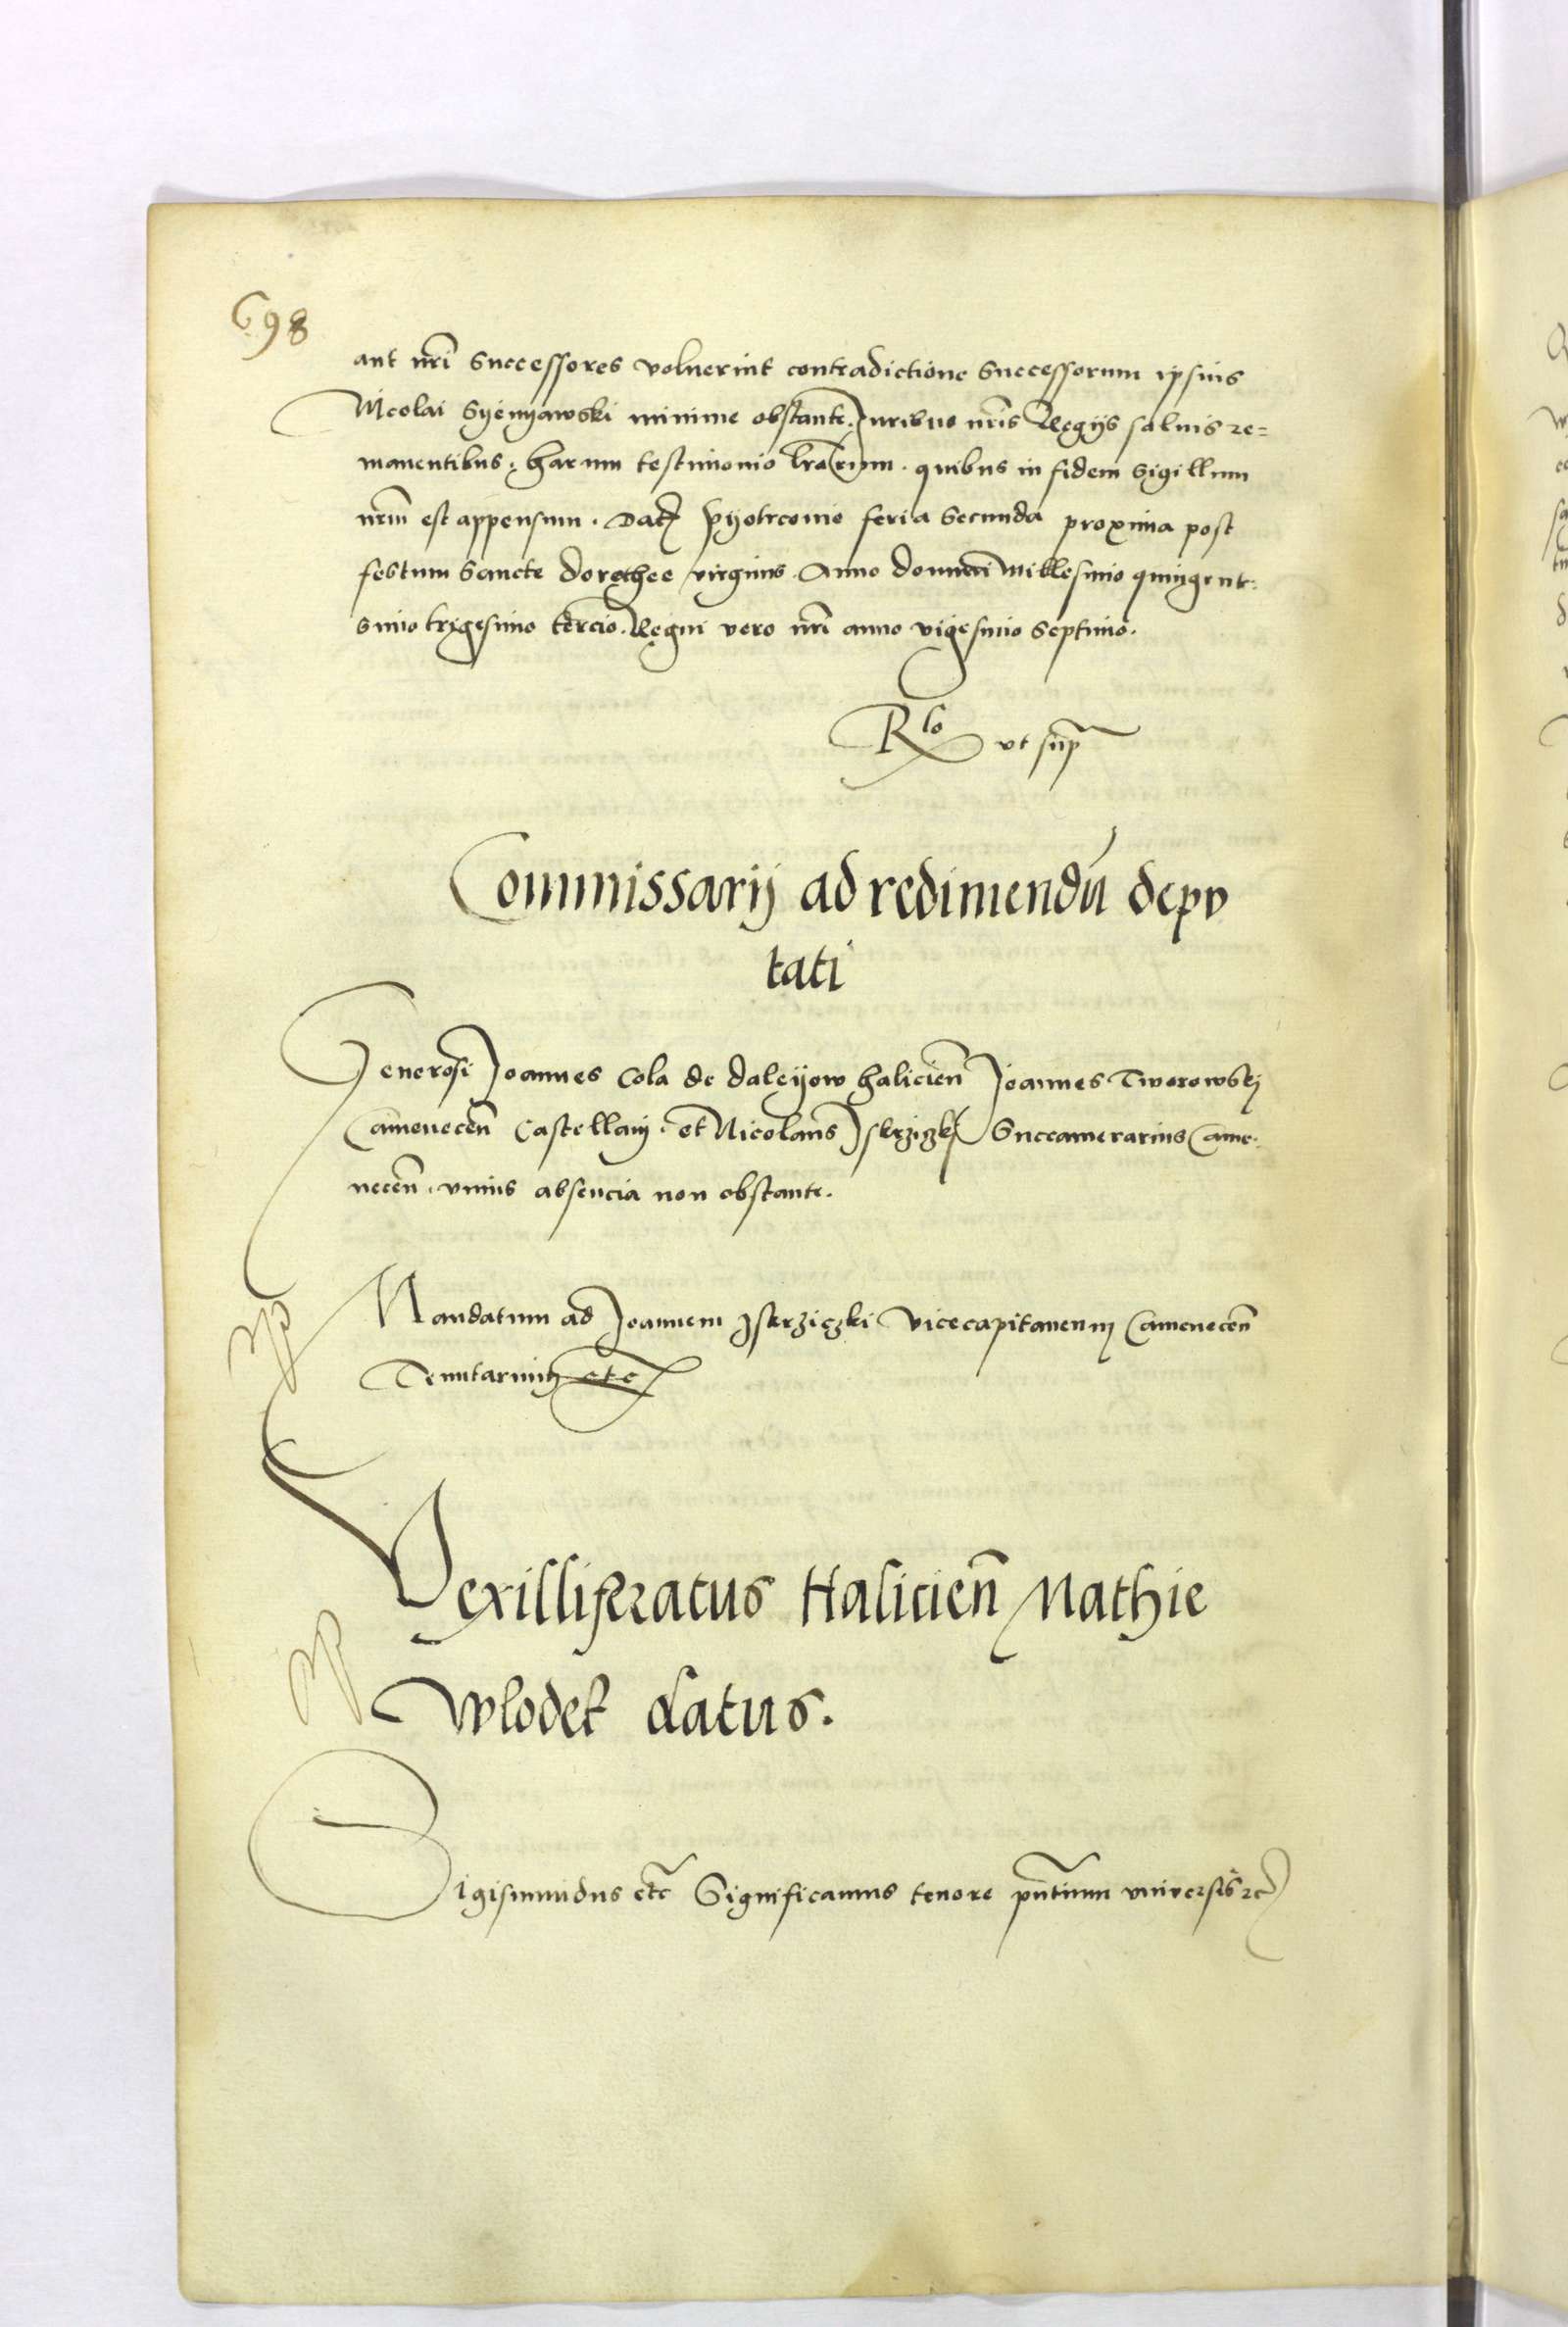 698
aut nri Successores voluerint contradictione Successorum ipsius
Nicolai Syenyawski minime obstante. Iuribus nris Regijs salvis re=
manentibus, harum testimonio lrarum. quibus in fidem Sigillum
nrm est appensum. Dat Pyotrconie feria Secunda proxima post
festum Sancte Dorothee virginis. Anno domini Millesimo quingente=
simo trigesimo tercio. Regni vero nri anno vigesimo Septimo.
Rlo vt sup
Commissarij ad redimendu depu
tati
Generosi Joannes Cola de Daleyow halicien Joannes Tworowskj
Camenecen Castellanj. et Nicolaus Jskrziczkj Succamerarius Came=
necen. unius absencia non obstante.
Mandatum ad Joannem Jskrziczki Vicecapitaneum Camenecen
Tenutarium etc
Vexilliferatus Halicien Mathie
Wlodek datus.
Sigismundus etc Significamus tenore pntium universis etc